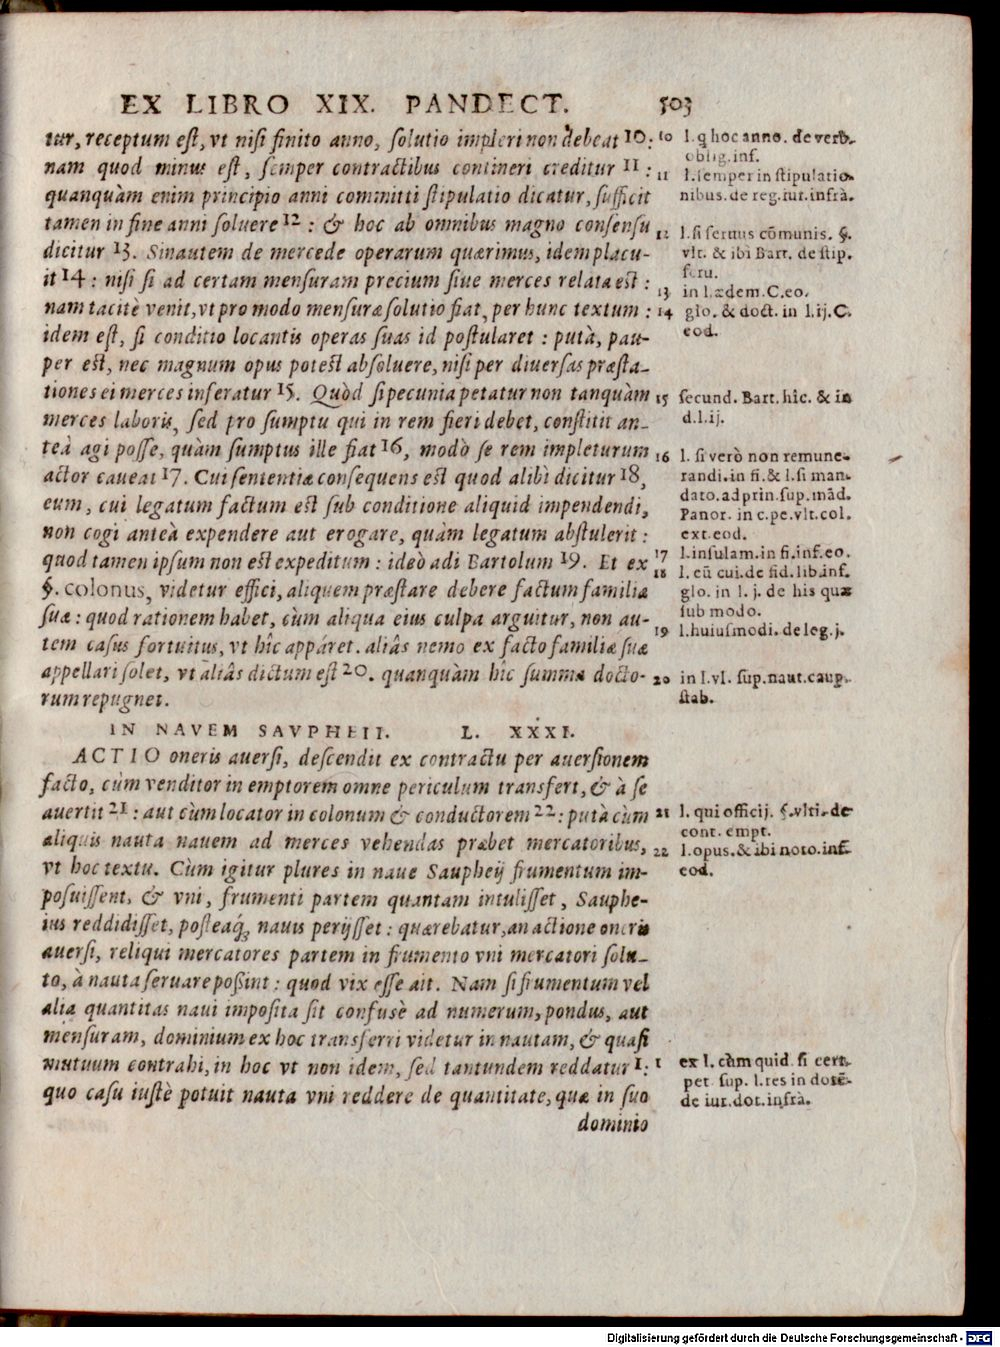 EX LIBRO XIX. PANDECT. 503
tur, receptum est, vt nisi finito anno, solutio impleri non debeat 10:
nam quod minus est, semper contractibus contineri creditur 11:
quanquàm enim principio anni committi stipulatio dicatur, sufficit
tamen in fine anni soluere 12: & hoc ab omnibus magno consensu
dicitur 13. Sinautem de mercede operarum quærimus, idem placu-
it 14: nisi si ad certam mensuram precium siue merces relata est:
nam tacitè venit, vt pro modo mensuræ solutio fiat, per hunc textum:
idem est, si conditio locantis operas suas id postularet: putà, pau-
per est, nec magnum opus potest absoluere, nisi per diuersas præsta-
tiones ei merces inferatur 15. Quòd si pecunia petatur non tanquàm
merces laboris, sed pro sumptu qui in rem fieri debet, constitit an-
teà agi posse, quàm sumptus ille fiat 16, modò se rem impleturum
actor caueat 17. Cui sententiæ consequens est quod alibi dicitur 18,
eum, cui legatum factum est sub conditione aliquid impendendi,
non cogi anteà expendere aut erogare, quàm legatum abstulerit:
quod tamen ipsum non est expeditum: ideò adi Bartolum 19. Et ex
§. colonus, videtur effici, aliquem præstare debere factum familiæ
suæ: quod rationem habet, cùm aliqua eius culpa arguitur, non au-
tem casus fortuitus, vt hîc appáret. aliâs nemo ex facto familiæ suæ
appellari solet, vt aliâs dictum est 20. quanquàm hîc summa docto-
rum repugnet.
IN NAVEM SAVPHEII. L. XXXI.
ACTIO oneris auersi, descendit ex contractu per auersionem
facto, cùm venditor in emptorem omne periculum transfert, & à se
auertit 21: aut cùm locator in colonum & conductorem 22: putà cùm
aliquis nauta nauem ad merces vehendas præbet mercatoribus,
vt hoc textu. Cùm igitur plures in naue Saupheij frumentum im-
posuissent, & vni, frumenti partem quantam intulisset, Sauphe-
ius reddidisset, posteaq́; nauis perijsset: quærebatur, an actione oneris
auersi, reliqui mercatores partem in frumento vni mercatori solu-
to, à nauta seruare poßint: quod vix esse ait. Nam si frumentum vel
alia quantitas naui imposita sit confusè ad numerum, pondus, aut
mensuram, dominium ex hoc transferri videtur in nautam, & quasi
mutuum contrahi, in hoc vt non idem, sed tantundem reddatur 1:
quo casu iustè potuit nauta vni reddere de quantitate, quæ in suo
dominio
10 l. q hoc anno. de verb.
oblig. inf.
11 l. semper in stipulatio-
nibus. de reg. iur. infrà.
12 l. si seruus cōmunis. §.
vlt. & ibi Bart. de stip.
seru.
13 in l. ædem. C. eo.
14 glo. & doct. in l. ij. C.
eod.
15 secund. Bart. hîc. & in
d. l. ij.
16 l. si verò non remune-
randi. in fi. & l. si man-
dato. ad prin. sup. mād.
Panor. in c. pe. vlt. col.
ext. eod.
17 l. insulam. in fi. inf. eo.
18 l. eū cui. de fid. lib. inf.
glo. in l. j. de his quæ
sub modo.
19 l. huiusmodi. de leg. j.
20 in l. vl. sup. naut. caup.
stab.
21 l. qui officij. §. vlti. de
cont. empt.
22 l. opus. & ibi noto. inf.
eod.
1 ex l. cùm quid. si cert.
pet. sup. l. res in dotē.
de iur. dot. infrà.
Digitalisierung gefördert durch die Deutsche Forschungsgemeinschaft - DFG